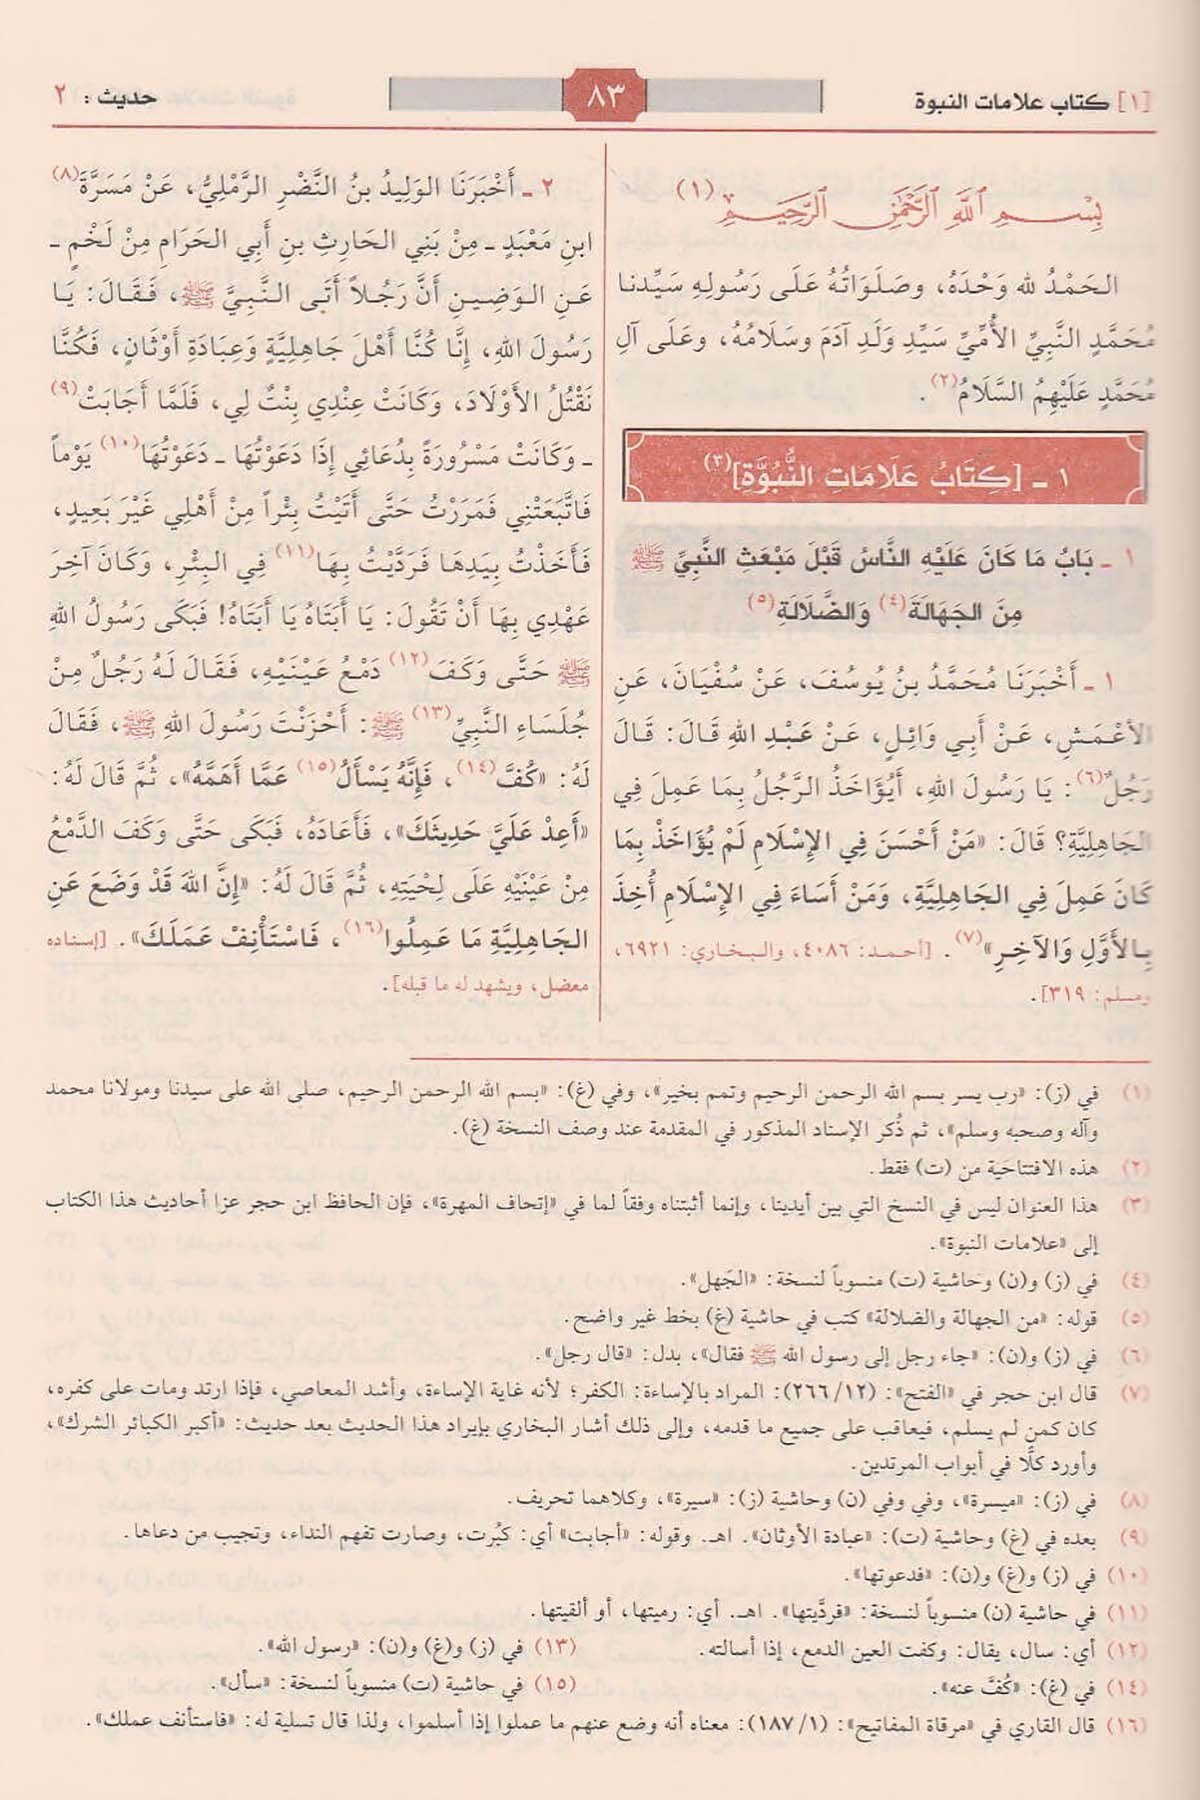 [١] كتاب علامات النبوة
٨٣
حديث : ٢
بِسْمِ ٱللَّهِ ٱلرَّحْمَٰنِ ٱلرَّحِيمِ (١)
الحَمْدُ لله وَحْدَهُ، وصَلَوَاتُهُ عَلَى رَسُولِهِ سَيِّدنا
مُحَمَّدٍ النَّبِيِّ الأُمِّيِّ سَيِّدِ وَلَدِ آدَمَ وسَلَامُهُ، وعَلَى آلِ
مُحَمَّدٍ عَلَيْهِمُ السَّلَامُ(٢).
١ ـ [كِتَابُ عَلَامَاتِ النُّبُوَّةِ](٣)
١ ـ بَابُ مَا كَانَ عَلَيْهِ النَّاسُ قَبْلَ مَبْعَثِ النَّبِيِّ ﷺ
مِنَ الجَهَالَةِ(٤) وَالضَّلَالَةِ(٥)
١ ـ أَخْبَرَنَا مُحَمَّدُ بنُ يُوسُفَ، عَنْ سُفْيَانَ، عَنِ
الأعْمَشِ، عَنْ أَبِي وَائِلٍ، عَنْ عَبْدِ اللهِ قَالَ: قَالَ
رَجُلٌ(٦): يَا رَسُولَ اللهِ، أَيُؤَاخَذُ الرَّجُلُ بِمَا عَمِلَ فِي
الجَاهِلِيَّةِ؟ قَالَ: «مَنْ أَحْسَنَ فِي الإسْلَامِ لَمْ يُؤَاخَذْ بِمَا
كَانَ عَمِلَ فِي الجَاهِلِيَّةِ، وَمَنْ أَسَاءَ فِي الإِسْلَامِ أُخِذَ
بِالأَوَّلِ وَالآخِرِ»(٧). [أحمد: ٤٠٨٦، والبخاري: ٦٩٢١،
ومسلم: ٣١٩].
٢ ـ أَخْبَرَنَا الوَلِيدُ بنُ النَّضْرِ الرَّمْلِيُّ، عَنْ مَسَرَّةَ(٨)
ابنِ مَعْبَدٍ ـ مِنْ بَنِي الحَارِثِ بنِ أَبِي الحَرَامِ مِنْ لَخْمٍ ـ
عَنِ الوَضِينِ أَنَّ رَجُلاً أَتَى النَّبِيَّ ﷺ، فَقَالَ: يَا
رَسُولَ اللهِ، إِنَّا كُنَّا أَهْلَ جَاهِلِيَّةٍ وَعِبَادَةِ أَوْثَانٍ، فَكُنَّا
نَقْتُلُ الأَوْلَادَ، وَكَانَتْ عِنْدِي بِنْتٌ لِي، فَلَمَّا أَجَابَتْ(٩)
ـ وَكَانَتْ مَسْرُورَةً بِدُعَائِي إِذَا دَعَوْتُهَا ـ دَعَوْتُهَا(١٠) يَوْماً
فَاتَّبَعَتْنِي فَمَرَرْتُ حَتَّى أَتَيْتُ بِئْراً مِنْ أَهْلِي غَيْرَ بَعِيدٍ،
فَأَخَذْتُ بِيَدِهَا فَرَدَّيْتُ بِهَا(١١) فِي البِئْرِ، وَكَانَ آخِرَ
عَهْدِي بِهَا أَنْ تَقُولَ: يَا أَبَتَاهُ يَا أَبَتَاهُ! فَبَكَى رَسُولُ اللهِ
ﷺ حَتَّى وَكَفَ(١٢) دَمْعُ عَيْنَيْهِ، فَقَالَ لَهُ رَجُلٌ مِنْ
جُلَسَاءِ النَّبِيِّ(١٣) ﷺ: أَحْزَنْتَ رَسُولَ اللهِ ﷺ، فَقَالَ
لَهُ: «كُفَّ(١٤)، فَإِنَّهُ يَسْأَلُ(١٥) عَمَّا أَهَمَّهُ»، ثُمَّ قَالَ لَهُ:
«أَعِدْ عَلَيَّ حَدِيثَكَ»، فَأَعَادَهُ، فَبَكَى حَتَّى وَكَفَ الدَّمْعُ
مِنْ عَيْنَيْهِ عَلَى لِحْيَتِهِ، ثُمَّ قَالَ لَهُ: «إِنَّ اللهَ قَدْ وَضَعَ عَنِ
الجَاهِلِيَّةِ مَا عَمِلُوا(١٦)، فَاسْتَأْنِفْ عَمَلَكَ». [إسناده
معضل، ويشهد له ما قبله].
(١) في (ز): «رب يسر بسم الله الرحمن الرحيم وتمم بخير»، وفي (غ): «بسم الله الرحمن الرحيم، صلى الله على سيدنا ومولانا محمد
وآله وصحبه وسلم»، ثم ذُكر الإسناد المذكور في المقدمة عند وصف النسخة (غ).
(٢) هذه الافتتاحية من (ت) فقط.
(٣) هذا العنوان ليس في النسخ التي بين أيدينا، وإنما أثبتناه وفقاً لما في «إتحاف المهرة»، فإن الحافظ ابن حجر عزا أحاديث هذا الكتاب
إلى «علامات النبوة».
(٤) في (ز) و(ن) وحاشية (ت) منسوباً لنسخة: «الجَهل».
(٥) قوله: «من الجهالة والضلالة» كتب في حاشية (غ) بخط غير واضح.
(٦) في (ز) و(ن): «جاء رجل إلى رسول الله ﷺ فقال»، بدل: «قال رجل».
(٧) قال ابن حجر في «الفتح»: (١٢/٢٦٦): المراد بالإساءة: الكفر؛ لأنه غاية الإساءة، وأشد المعاصي، فإذا ارتد ومات على كفره،
كان كمن لم يسلم، فيعاقب على جميع ما قدمه، وإلى ذلك أشار البخاري بإيراد هذا الحديث بعد حديث: «أكبر الكبائر الشرك»،
وأورد كلًّا في أبواب المرتدين.
(٨) في (ز): «ميسرة»، وفي وفي (ن) وحاشية (ز): «سيرة»، وكلاهما تحريف.
(٩) بعده في (غ) وحاشية (ت): «عبادة الأوثان». اهـ. وقوله: «أجابت» أي: كبُرت، وصارت تفهم النداء، وتجيب من دعاها.
(١٠) في (ز) و(غ) و(ن): «فدعوتها».
(١١) في حاشية (ن) منسوباً لنسخة: «فردَّيتها». اهـ. أي: رميتها، أو ألقيتها.
(١٢) أي: سال، يقال: وكفت العين الدمع، إذا أسالته.
(١٣) في (ز) و(غ) و(ن): «رسول الله».
(١٤) في (غ): «كُفَّ عنه».
(١٥) في حاشية (ت) منسوباً لنسخة: «سأل».
(١٦) قال القاري في «مرقاة المفاتيح»: (١/١٨٧): معناه أنه وضع عنهم ما عملوا إذا أسلموا، ولذا قال تسلية له: «فاستأنف عملك».